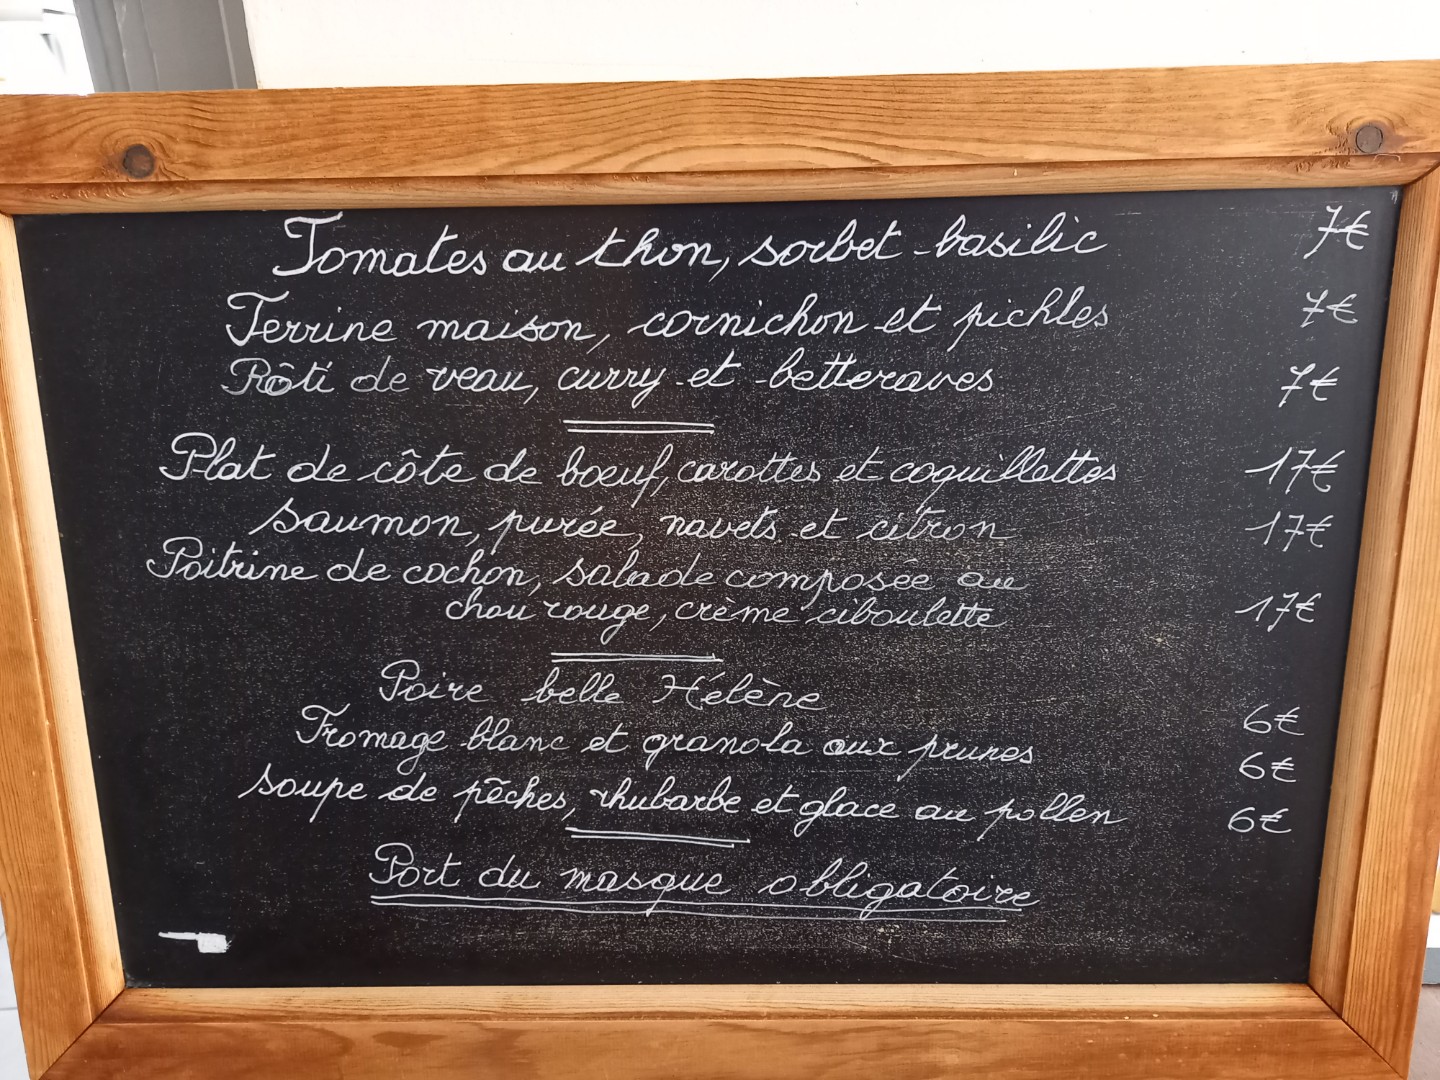 Tomates au thon, sorbet basilic 7€
Terrine maison, cornichon et pichles 7€
Rôti de veau, curry et betteraves 7€
Plat de côte de boeuf, carottes et coquillettes 17€
Saumon, purée, navets et citron 17€
Poitrine de cochon, salade composée au
chou rouge, crème ciboulette 17€
Poire belle Hélène 6€
Fromage blanc et granola aux prunes 6€
Soupe de pêches, rhubarbe et glace au pollen 6€
Port du masque obligatoire